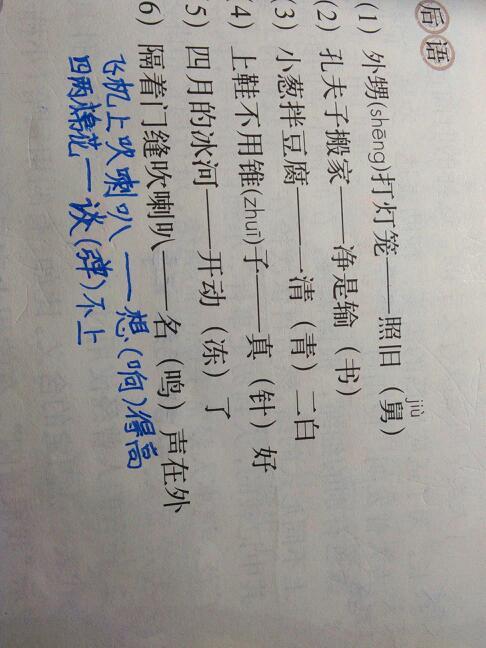 后语
(1) 外甥(shēng)打灯笼——照旧（舅jiù）
(2) 孔夫子搬家——净是输（书）
(3) 小葱拌豆腐——一清（青）二白
(4) 上鞋不用锥(zhuī)子——真（针）好
5) 四月的冰河——开动（冻）了
6) 隔着门缝吹喇叭——名（鸣）声在外
飞机上吹喇叭——想(响)得高
四两棉花——谈(弹)不上